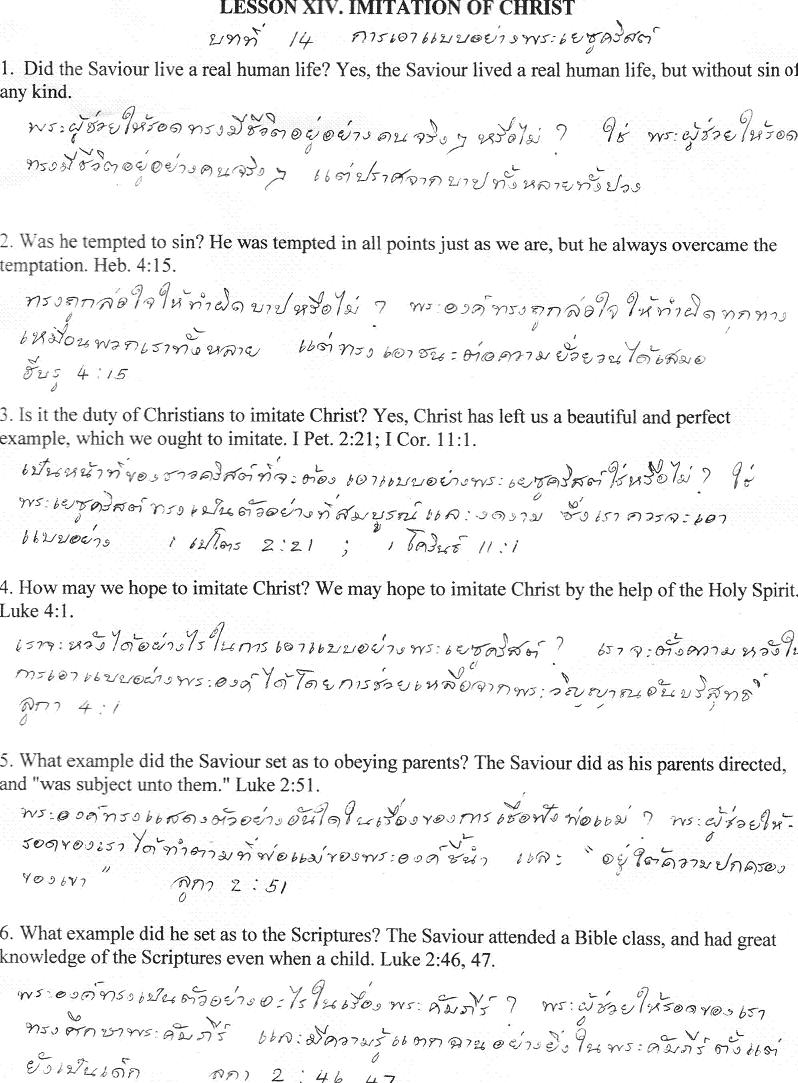 LESSON XIV. IMITATION OF CHRIST
บทที่ 14 การเอาแบบอย่างพระเยซูคริสต์
1. Did the Saviour live a real human life? Yes, the Saviour lived a real human life, but without sin of
any kind.
พระผู้ช่วยให้รอดทรงมีชีวิตอยู่อย่างคนจริงๆ หรือไม่ ? ใช่ พระผู้ช่วยให้รอด
ทรงมีชีวิตอยู่อย่างคนจริงๆ แต่ปราศจากบาปทั้งหลายทั้งปวง
2. Was he tempted to sin? He was tempted in all points just as we are, but he always overcame the
temptation. Heb. 4:15.
ทรงถูกล่อใจให้ทำผิดบาปหรือไม่ ? พระองค์ทรงถูกล่อใจให้ทำผิดทุกทาง
เหมือนพวกเราทั้งหลาย แต่ทรงเอาชนะต่อความยั่วยวนได้เสมอ
ฮีบรู 4:15
3. Is it the duty of Christians to imitate Christ? Yes, Christ has left us a beautiful and perfect
example, which we ought to imitate. I Pet. 2:21; I Cor. 11:1.
เป็นหน้าที่ของชาวคริสต์ที่จะต้องเอาแบบอย่างพระเยซูคริสต์ใช่หรือไม่ ? ใช่
พระเยซูคริสต์ทรงเป็นตัวอย่างที่สมบูรณ์และงดงาม ซึ่งเราควรจะเอา
แบบอย่าง 1 เปโตร 2:21 ; 1 โครินธ์ 11:1
4. How may we hope to imitate Christ? We may hope to imitate Christ by the help of the Holy Spirit.
Luke 4:1.
เราจะหวังได้อย่างไรในการเอาแบบอย่างพระเยซูคริสต์ ? เราจะตั้งความหวังใน
การเอาแบบอย่างพระองค์ได้โดยการช่วยเหลือจากพระวิญญาณอันบริสุทธิ์
ลูกา 4:1
5. What example did the Saviour set as to obeying parents? The Saviour did as his parents directed,
and "was subject unto them." Luke 2:51.
พระองค์ทรงแสดงตัวอย่างอันใดในเรื่องของการเชื่อฟังพ่อแม่ ? พระผู้ช่วยให้-
รอดของเราได้ทำตามที่พ่อแม่ของพระองค์ชี้นำ และ "อยู่ใต้ความปกครอง
ของเขา" ลูกา 2:51
6. What example did he set as to the Scriptures? The Saviour attended a Bible class, and had great
knowledge of the Scriptures even when a child. Luke 2:46, 47.
พระองค์ทรงเป็นตัวอย่างอะไรในเรื่องพระคัมภีร์ ? พระผู้ช่วยให้รอดของเรา
ทรงศึกษาพระคัมภีร์ และมีความรู้แตกฉานอย่างยิ่งในพระคัมภีร์ตั้งแต่
ยังเป็นเด็ก ลูกา 2:46, 47